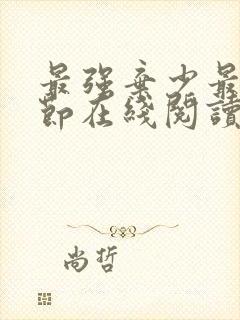 最强弃少最
節在綫閱讀
尚哲